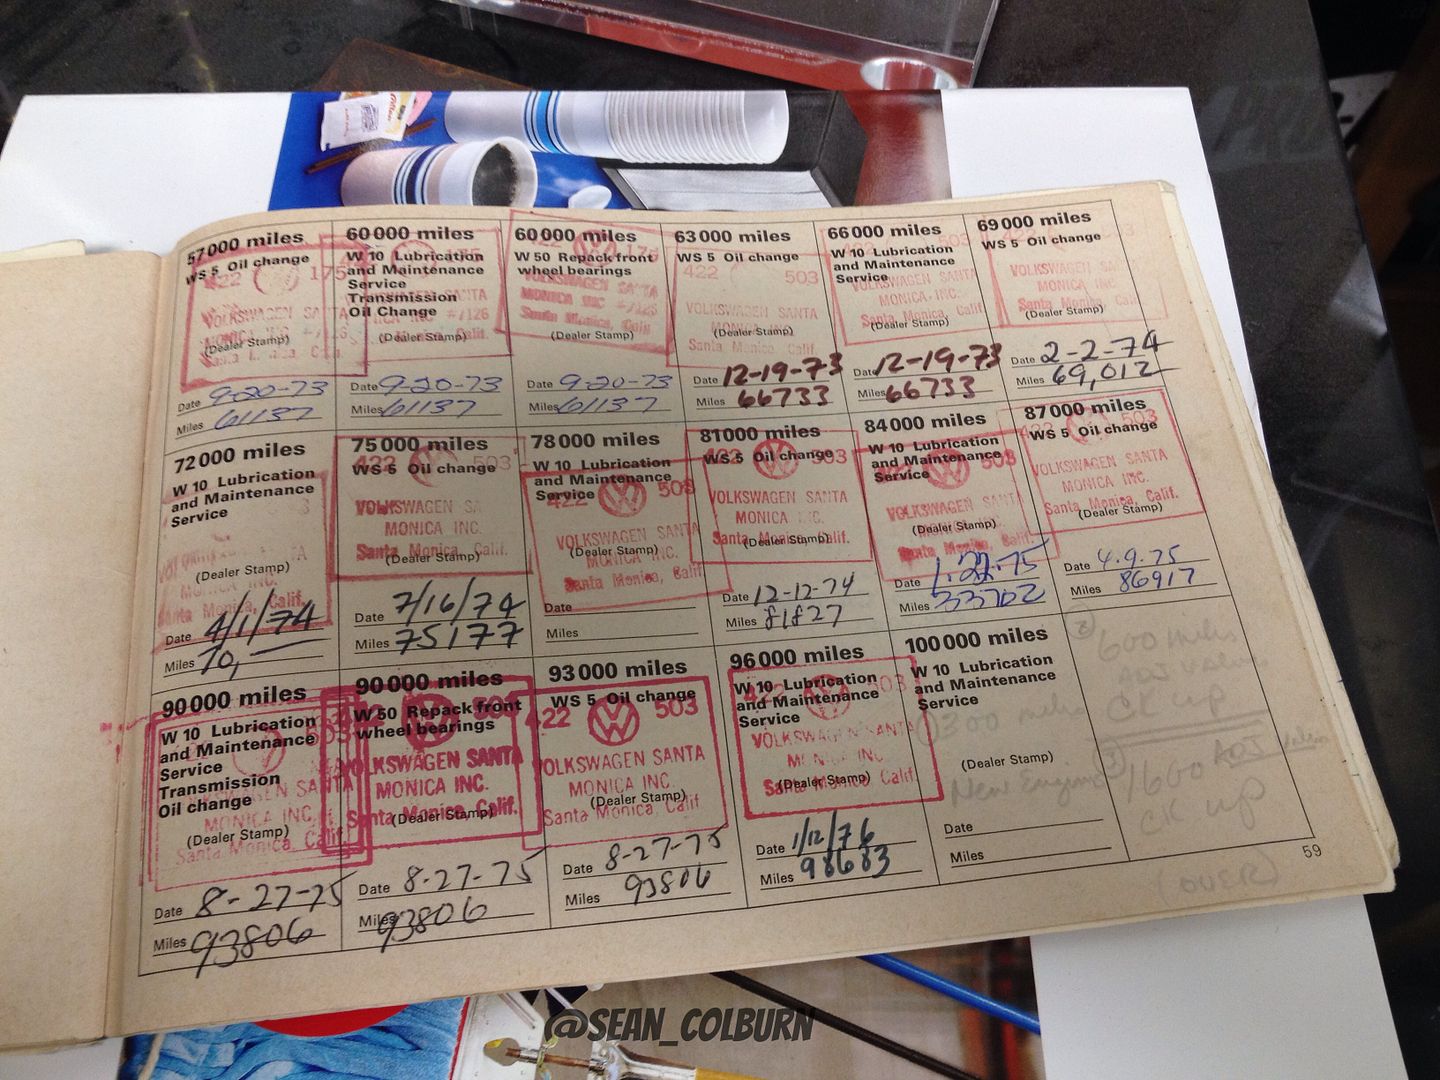 57000 miles
WS 5 Oil change
422 175
VOLKSWAGEN SANTA
MONICA INC #7126
Santa Monica, Calif
(Dealer Stamp)
Date 9-20-73
Miles 61137
60000 miles
W 10 Lubrication
and Maintenance
Service
Transmission
Oil Change
175
SANTA
MONICA INC #7126
Santa Monica, Calif.
(Dealer Stamp)
Date 9-20-73
Miles 61137
60000 miles
W 50 Repack front
wheel bearings
422 175
VOLKSWAGEN SANTA
MONICA INC #7126
Santa Monica, Calif
(Dealer Stamp)
Date 9-20-73
Miles 61137
63000 miles
WS 5 Oil change
422 503
VOLKSWAGEN SANTA
MONICA INC.
Santa Monica Calif
(Dealer Stamp)
Date 12-19-73
Miles 66733
66000 miles
W 10 Lubrication
and Maintenance
Service
422 503
VOLKSWAGEN SANTA
MONICA, INC.
Santa Monica, Calif.
(Dealer Stamp)
Date 12-19-73
Miles 66733
69000 miles
WS 5 Oil change
VOLKSWAGEN SA
MONICA INC.
Santa Monica, Calif.
(Dealer Stamp)
Date 2-2-74
Miles 69,012
72000 miles
W 10 Lubrication
and Maintenance
Service
(Dealer Stamp)
MONICA INC.
Santa Monica, Calif.
Date 4/1/74
Miles 70,
75000 miles
WS 5 Oil change
422 503
VOLKSWAGEN SA
MONICA INC.
Santa Monica, Calif.
(Dealer Stamp)
Date 7/16/74
Miles 75177
78000 miles
W 10 Lubrication
and Maintenance
Service
422 503
VOLKSWAGEN SANTA
(Dealer Stamp)
MONICA INC.
Santa Monica, Calif
Date
Miles
81000 miles
WS 5 Oil change
422 503
VOLKSWAGEN SANTA
MONICA INC.
Santa Monica, Calif.
(Dealer Stamp)
Date 12-12-74
Miles 81827
84000 miles
W 10 Lubrication
and Maintenance
Service
503
VOLKSWAGEN SANTA
MONICA INC.
(Dealer Stamp)
Santa Monica, Calif.
Date 1-22-75
Miles
87000 miles
WS 5 Oil change
422 503
VOLKSWAGEN SANTA
MONICA INC.
Santa Monica, Calif.
(Dealer Stamp)
Date 4.9.75
Miles 86917
90000 miles
W 10 Lubrication
and Maintenance
Service
Transmission
Oil change
503
VOLKSWAGEN SANTA
MONICA INC.
(Dealer Stamp)
Santa Monica, Calif
Date 8-27-75
Miles 93806
90000 miles
W 50 Repack front
wheel bearings
503
VOLKSWAGEN SANTA
MONICA INC.
Santa Monica, Calif.
(Dealer Stamp)
Date 8-27-75
Miles 93806
93000 miles
WS 5 Oil change
422 503
VOLKSWAGEN SANTA
MONICA INC.
(Dealer Stamp)
Santa Monica, Calif.
Date 8-27-75
Miles 93806
96000 miles
W 10 Lubrication
and Maintenance
Service
422 503
VOLKSWAGEN SANTA
MONICA INC.
(Dealer Stamp)
Santa Monica, Calif
Date 1/12/76
Miles 98683
100000 miles
W 10 Lubrication
and Maintenance
Service
(Dealer Stamp)
Date
Miles
① 300 miles
New Engine
② 600 miles
ADJ
CK up
③ 1600 ADJ
CK up
(OVER)
59
@SEAN_COLBURN